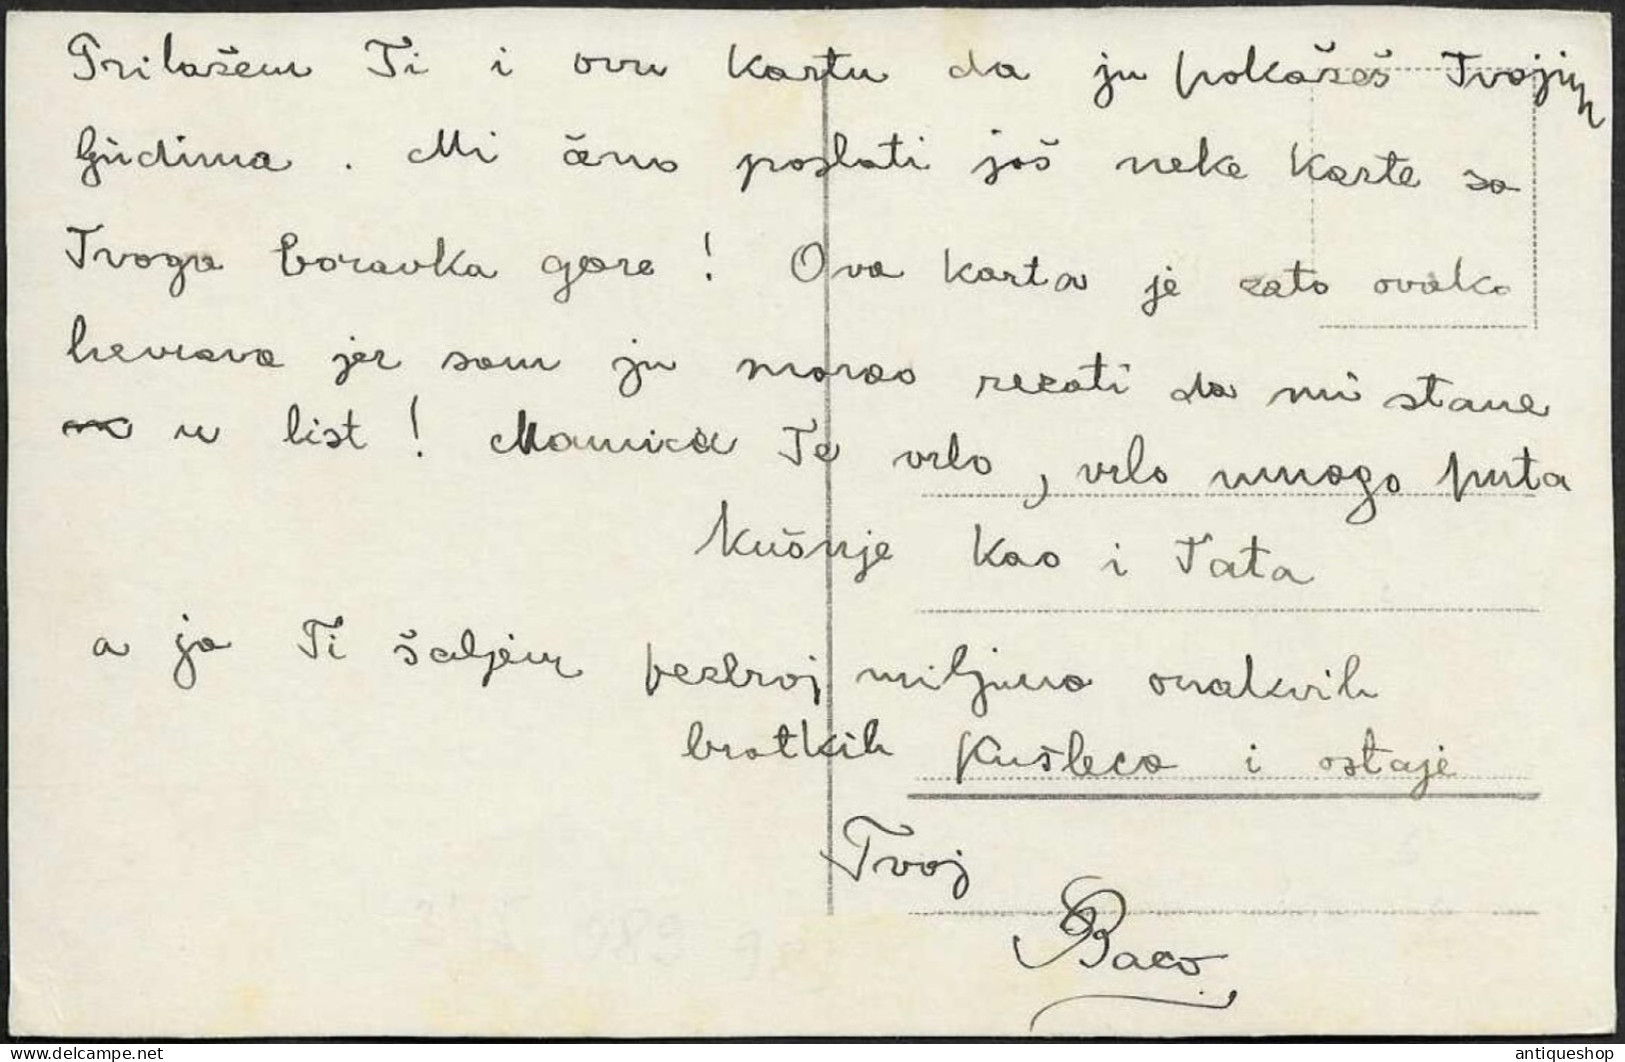 Prilažem Ti i ovu kartu da ju pokažeš Tvojim
ljudima. Mi ćemo poslati još neke karte sa
Tvoga boravka gore! Ova karta je zato ovako
hevrava jer sam ju morao rezati da mi stane
u list! Mamica Te vrlo, vrlo mnogo puta
kušuje kao i Tata
a ja Ti šaljem bezbroj miljuna onakvih
bratkih kušleca i ostaje
Tvoj
Baco
antiqueshop
www.delcampe.net